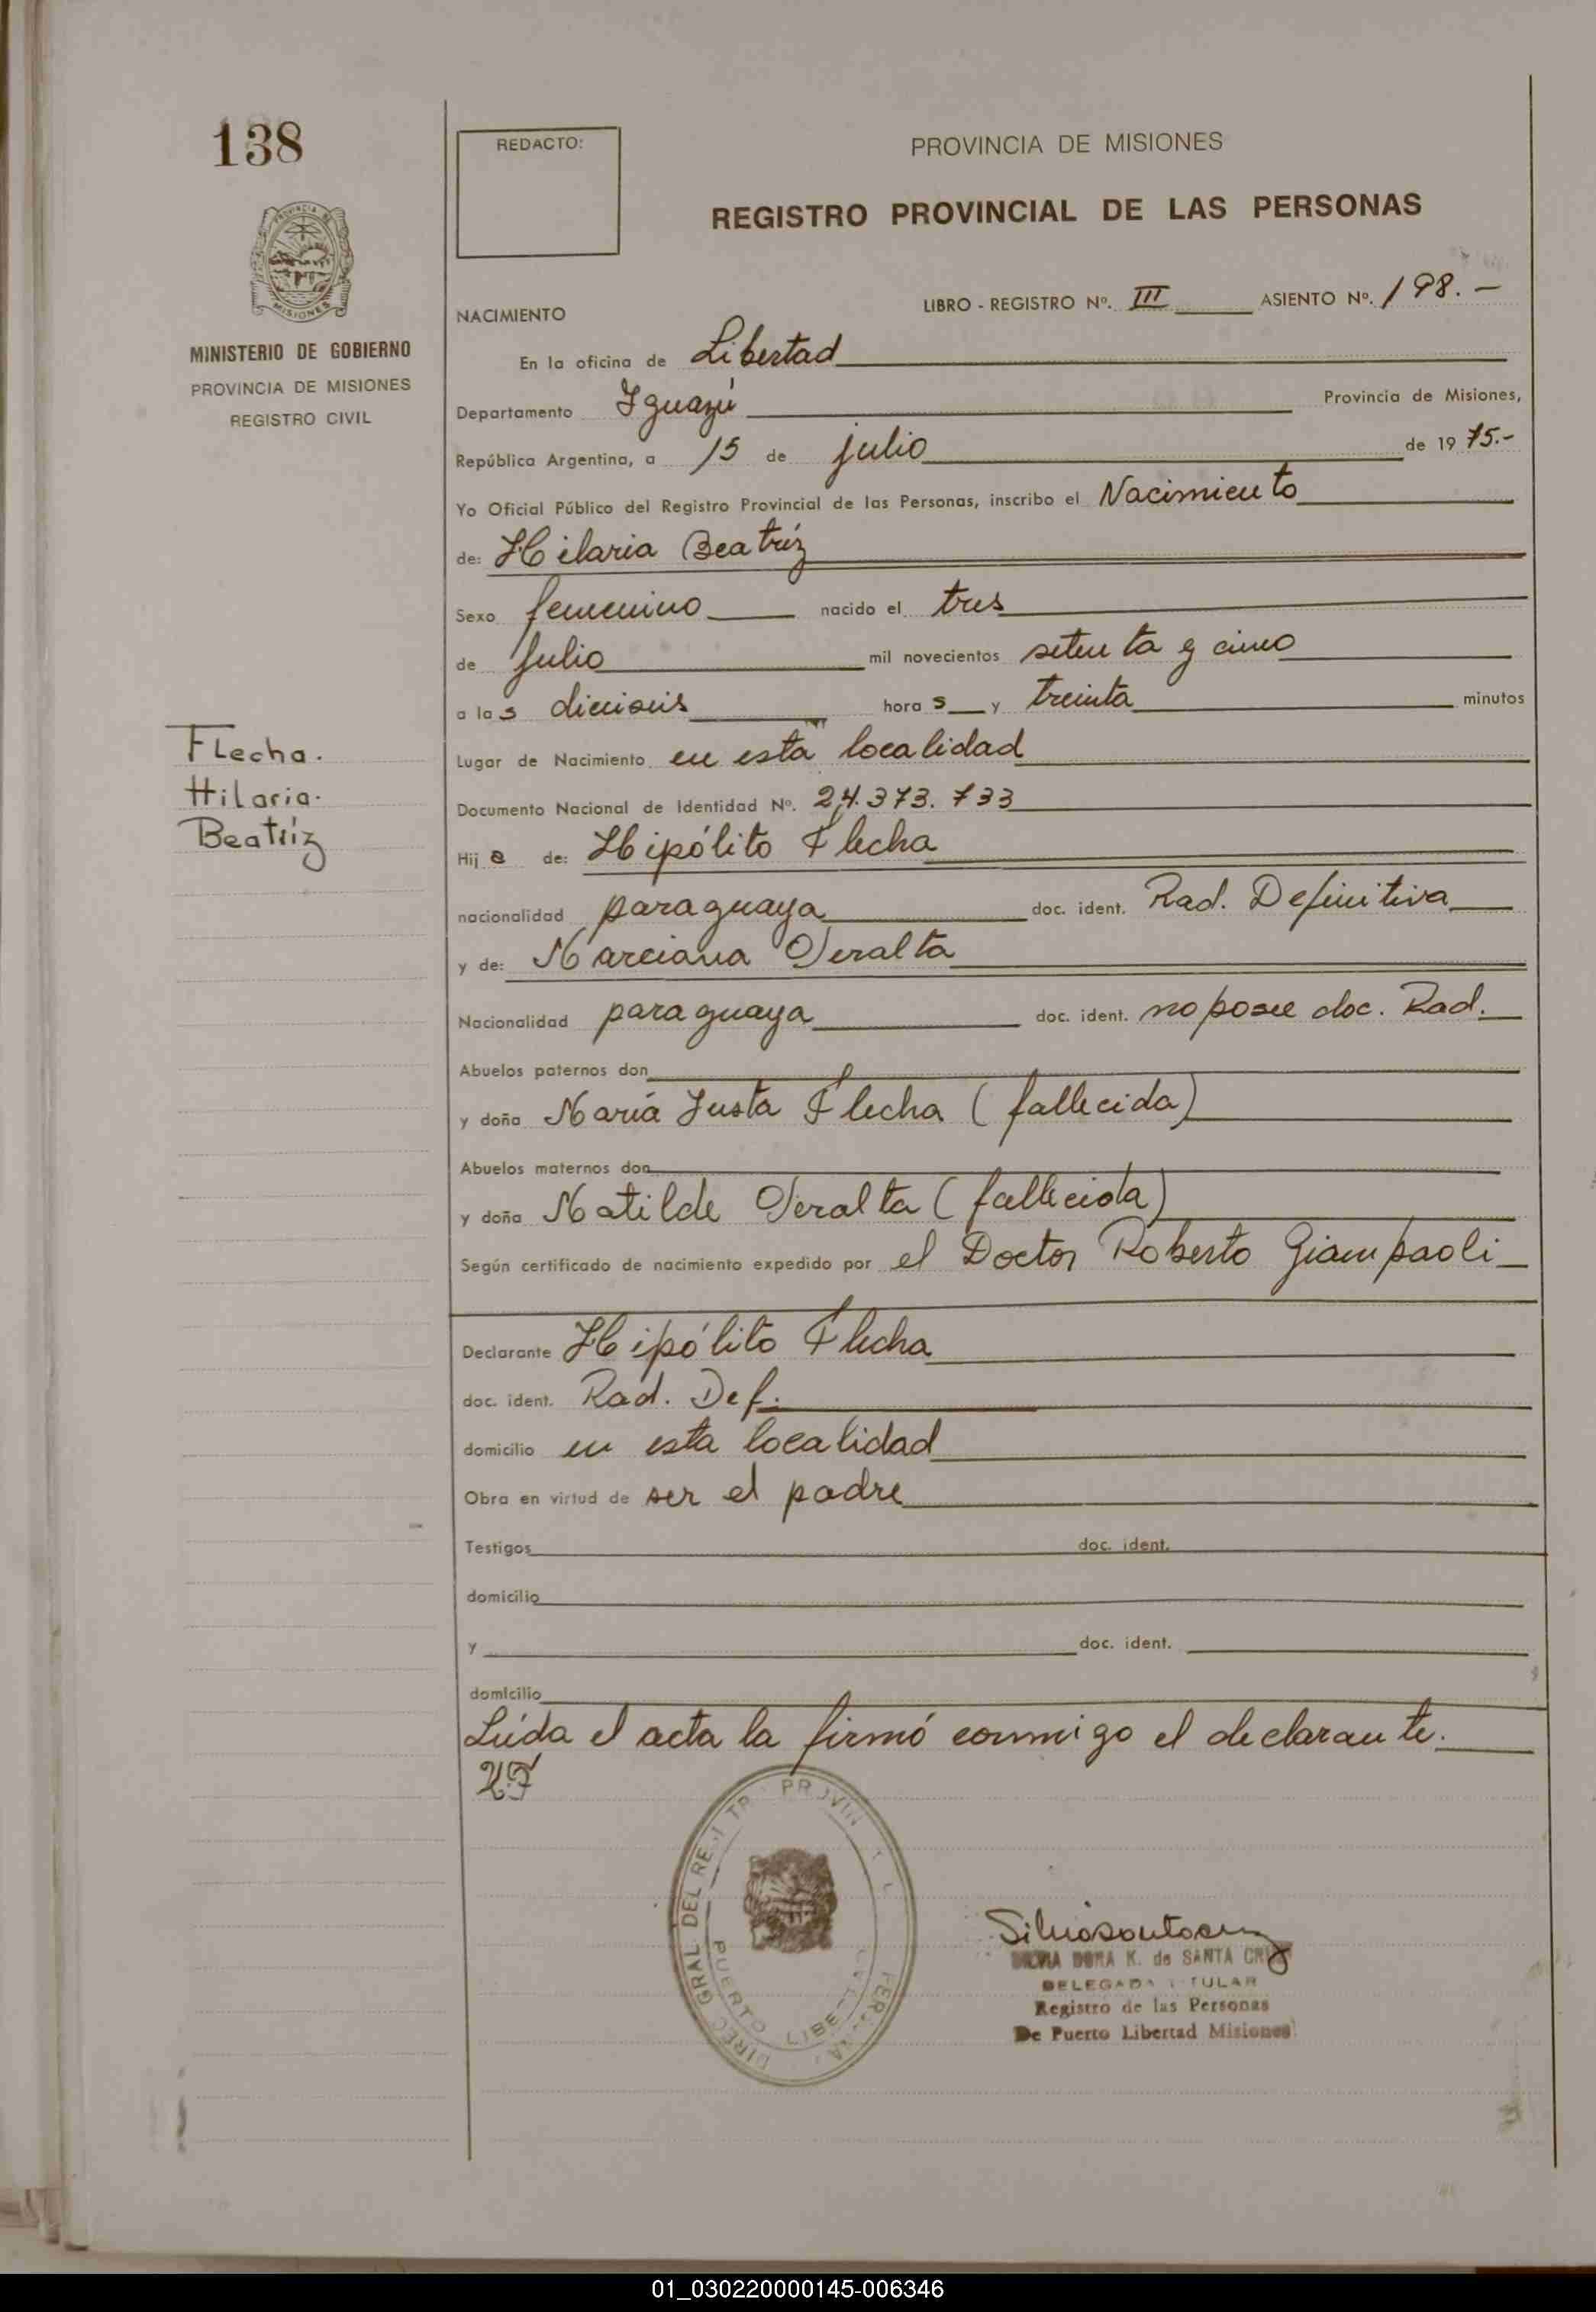 138
REDACTO:
PROVINCIA DE MISIONES
REGISTRO PROVINCIAL DE LAS PERSONAS
PROVINCIA DE
MISIONES
MINISTERIO DE GOBIERNO
PROVINCIA DE MISIONES
REGISTRO CIVIL
NACIMIENTO LIBRO - REGISTRO Nº. III ASIENTO Nº. 198.-
En la oficina de Libertad
Departamento Iguazú Provincia de Misiones,
República Argentina, a 15 de julio de 19 75.-
Yo Oficial Público del Registro Provincial de las Personas, inscribo el Nacimiento
de: Hilaria Beatríz
Sexo femenino nacido el tres
de julio mil novecientos setenta y cinco
a las dieciseis horas y treinta minutos
Flecha.
Hilaria.
Beatríz
Lugar de Nacimiento en esta localidad
Documento Nacional de Identidad Nº. 24.373.733
Hija de: Hipólito Flecha
nacionalidad paraguaya doc. ident. Rad. Definitiva
y de: Marciana Peralta
Nacionalidad paraguaya doc. ident. no posee doc. Rad.
Abuelos paternos don
y doña María Justa Flecha (fallecida)
Abuelos maternos don
y doña Matilde Peralta (fallecida)
Según certificado de nacimiento expedido por el Doctor Roberto Giampaoli
Declarante Hipólito Flecha
doc. ident. Rad. Def.
domicilio en esta localidad
Obra en virtud de ser el padre
Testigos doc. ident.
domicilio
y doc. ident.
domicilio
Leída el acta la firmó conmigo el declarante.
DIREC GRAL DEL
PUERTO LIBERTAD
SILVIA DORA K. de SANTA CRUZ
DELEGADA TITULAR
Registro de las Personas
De Puerto Libertad Misiones
01_030220000145-006346